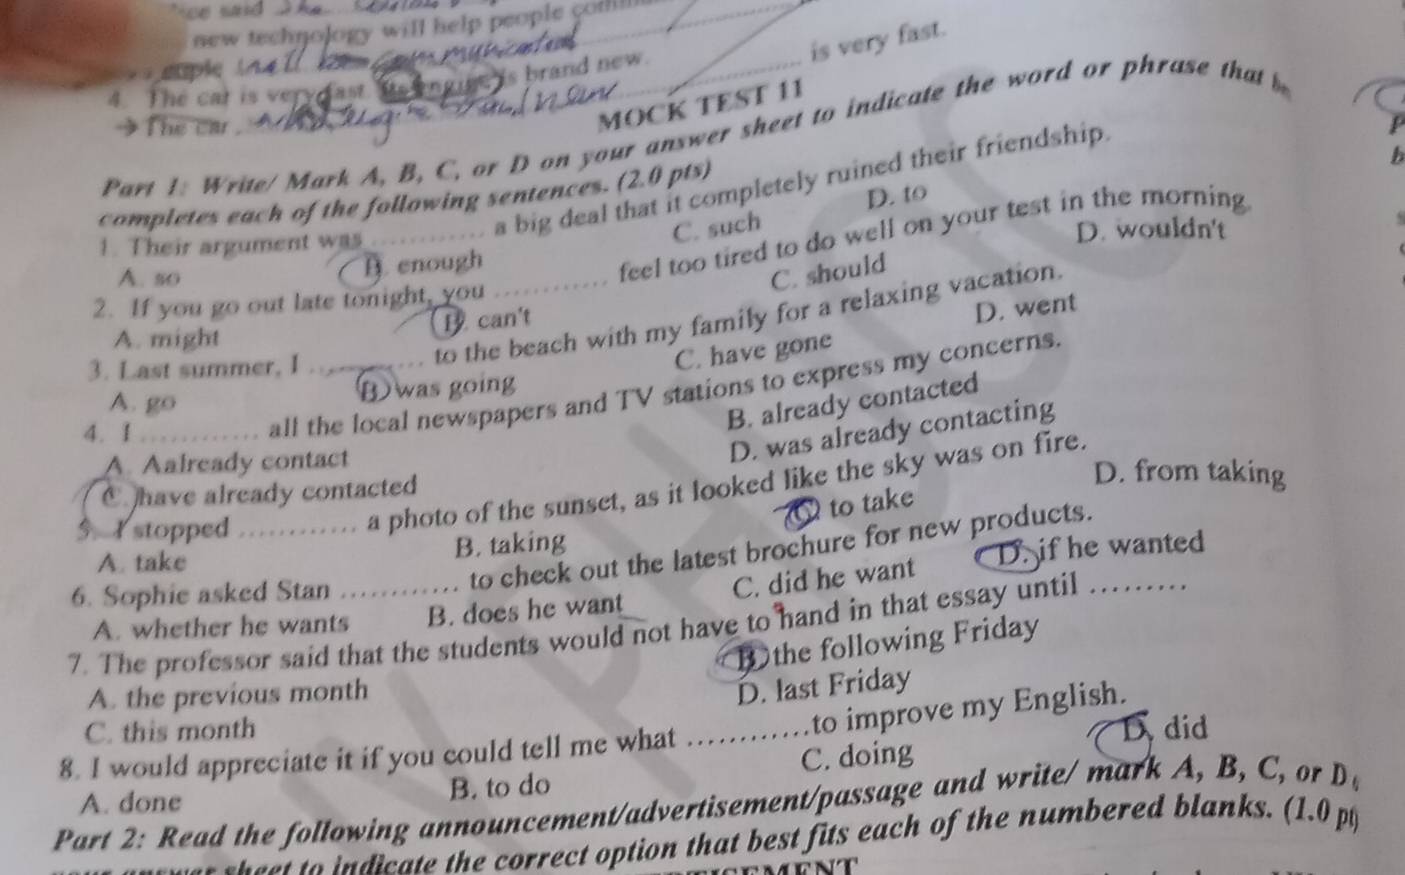 new technology will help people
will communicated
4. The car is very fast. Its engine is brand new.
→ The car is very fast.
MOCK TEST 11
Part 1: Write/ Mark A, B, C, or D on your answer sheet to indicate the word or phrase that
completes each of the following sentences. (2.0 pts)
1. Their argument was ............ a big deal that it completely ruined their friendship.
A. so B. enough C. such D. to
2. If you go out late tonight, you ............ feel too tired to do well on your test in the morning.
A. might B. can't C. should D. wouldn't
3. Last summer, I ............ to the beach with my family for a relaxing vacation.
A. go B. was going C. have gone D. went
4. I ............ all the local newspapers and TV stations to express my concerns.
A. Aalready contact B. already contacted
C. have already contacted D. was already contacting
5. I stopped ............ a photo of the sunset, as it looked like the sky was on fire.
A. take B. taking C. to take D. from taking
6. Sophie asked Stan ............ to check out the latest brochure for new products.
A. whether he wants B. does he want C. did he want D. if he wanted
7. The professor said that the students would not have to hand in that essay until .........
A. the previous month B. the following Friday
C. this month D. last Friday
8. I would appreciate it if you could tell me what ............to improve my English.
A. done B. to do C. doing D. did
Part 2: Read the following announcement/advertisement/passage and write/ mark A, B, C, or D
sheet to indicate the correct option that best fits each of the numbered blanks. (1.0 pt)